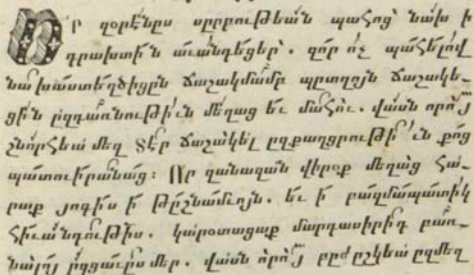 Ո՛ր զօրէնըս սըրբութեան պահոց՝ նախ ի
դրախտի՛ն աւանդեցեր՝. զոր ո՛չ պահելով
նախաստեղծիցըն ճաշակմամբ պտղոյն ճաշակե
ցին ըզդառնութի՛ւն մեղաց եւ մահու. վասն որոյ
շնորհեա՛ մեզ Տէր ճաշակել ըզքաղցրութի՛ւն քոց
պատուիրանաց։ Որ զանազան վիրօք մեղաց հա
րաք յոգիս ի թըշնամւոյն. եւ ի բազմապատիկ
հիւանդութիս. կարօտացաք մարդասիրիդ բառ
նալոյ զցաւըս մեր. վասն որոյ բըժըշկեա՛ ըզմեզ